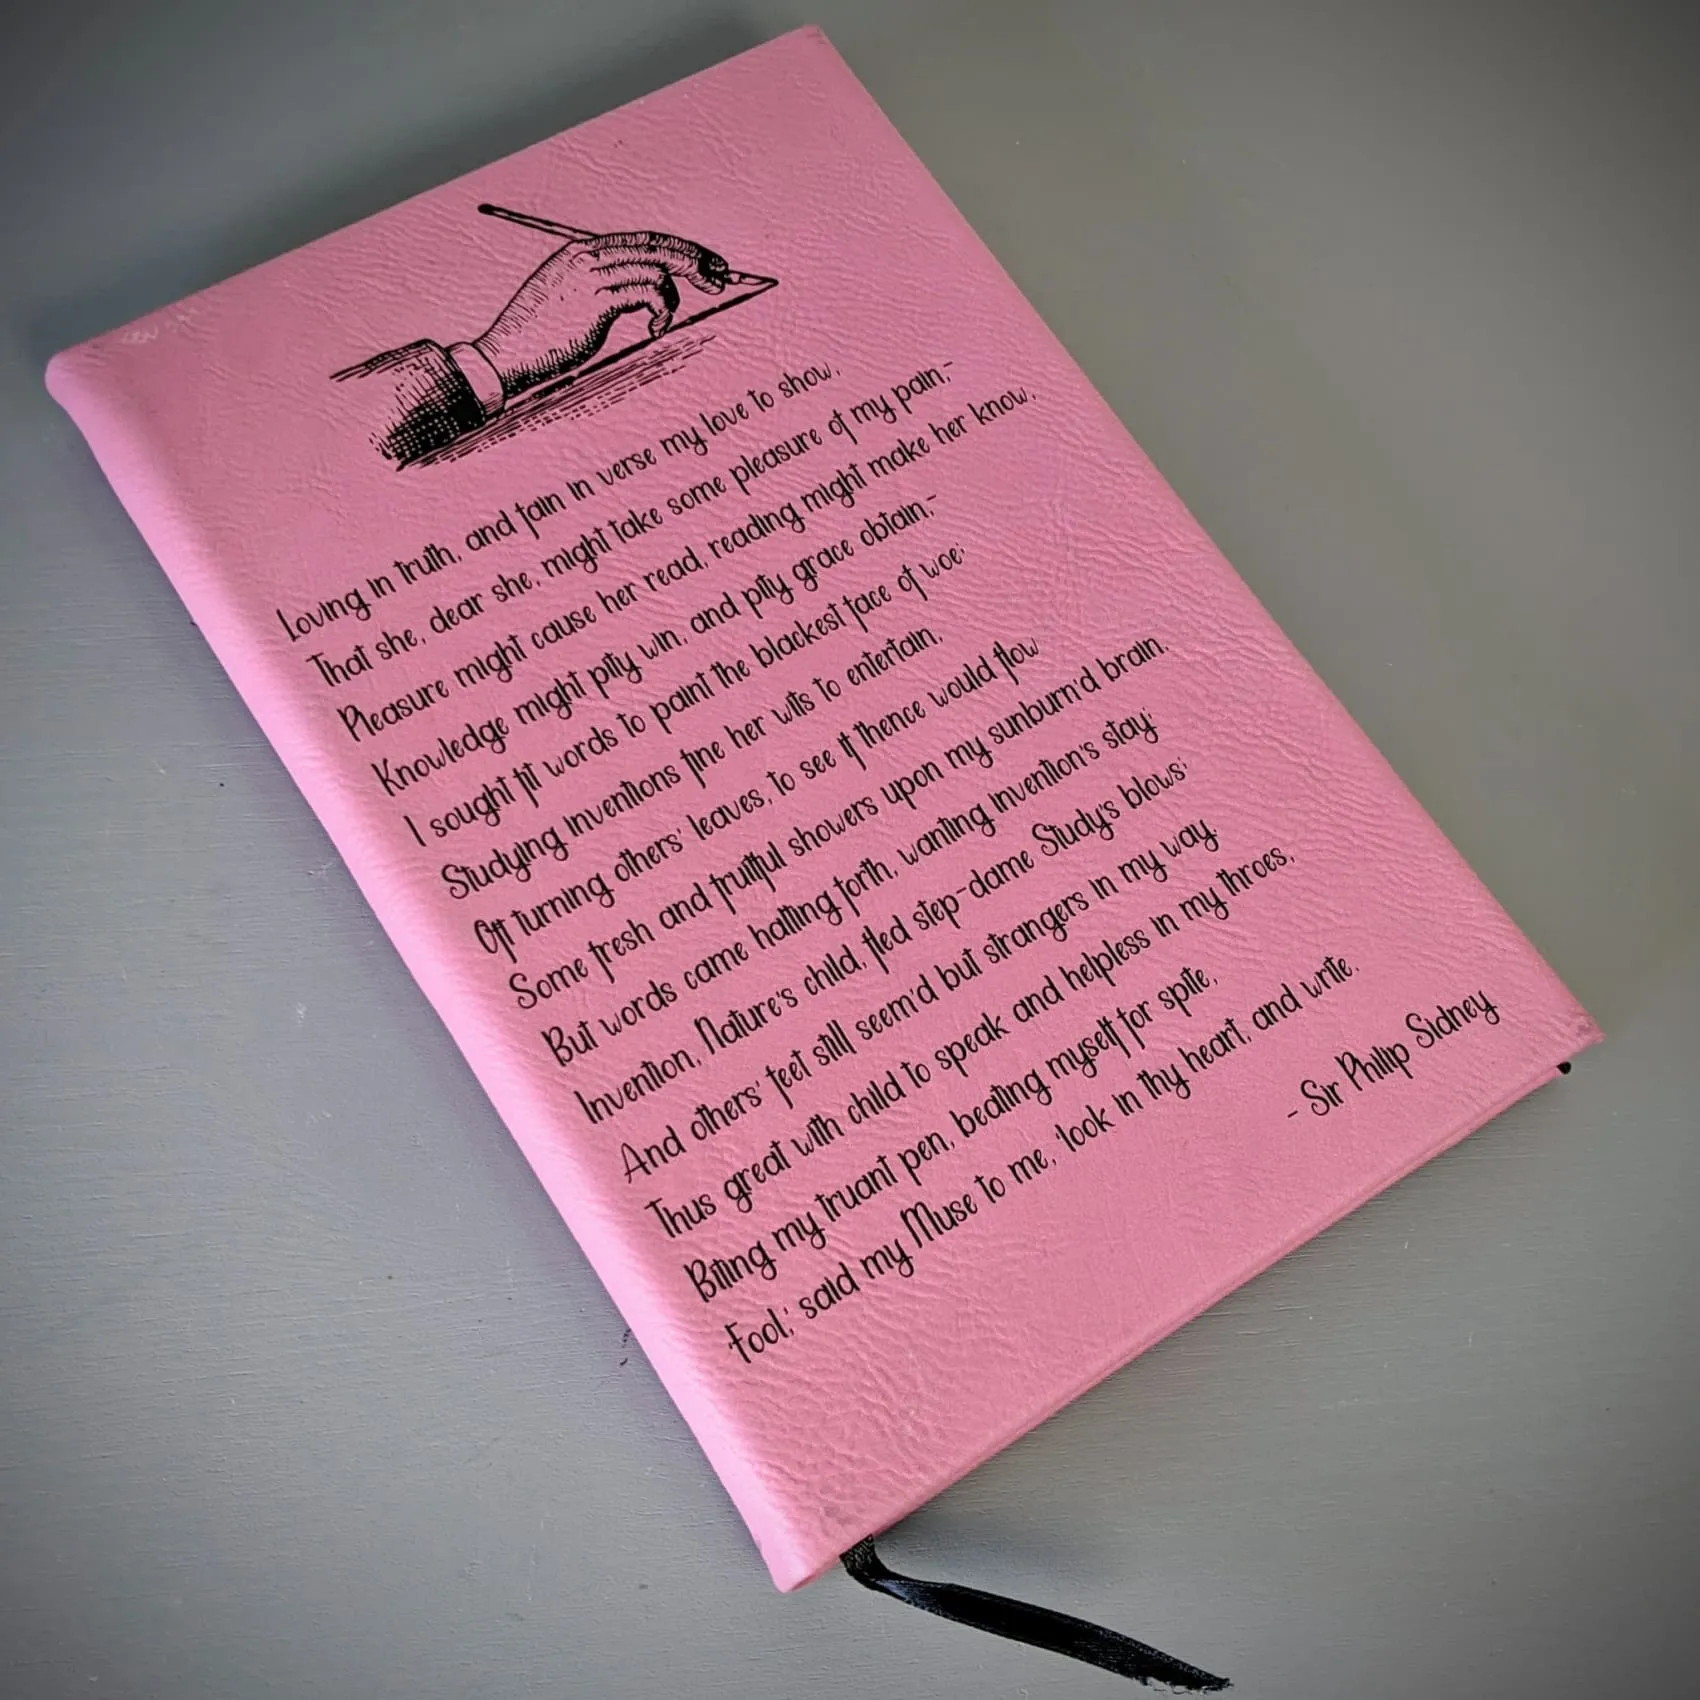 Loving in truth, and fain in verse my love to show,
That she, dear she, might take some pleasure of my pain,-
Pleasure might cause her read, reading might make her know,
Knowledge might pity win, and pity grace obtain,-
I sought fit words to paint the blackest face of woe;
Studying inventions fine her wits to entertain,
Oft turning others' leaves, to see if thence would flow
Some fresh and fruitful showers upon my sunburn'd brain.
But words came halting forth, wanting invention's stay;
Invention, Nature's child, fled step-dame Study's blows;
And others' feet still seem'd but strangers in my way.
Thus great with child to speak and helpless in my throes,
Biting my truant pen, beating myself for spite,
'Fool,' said my Muse to me, 'look in thy heart, and write.
- Sir Philip Sidney